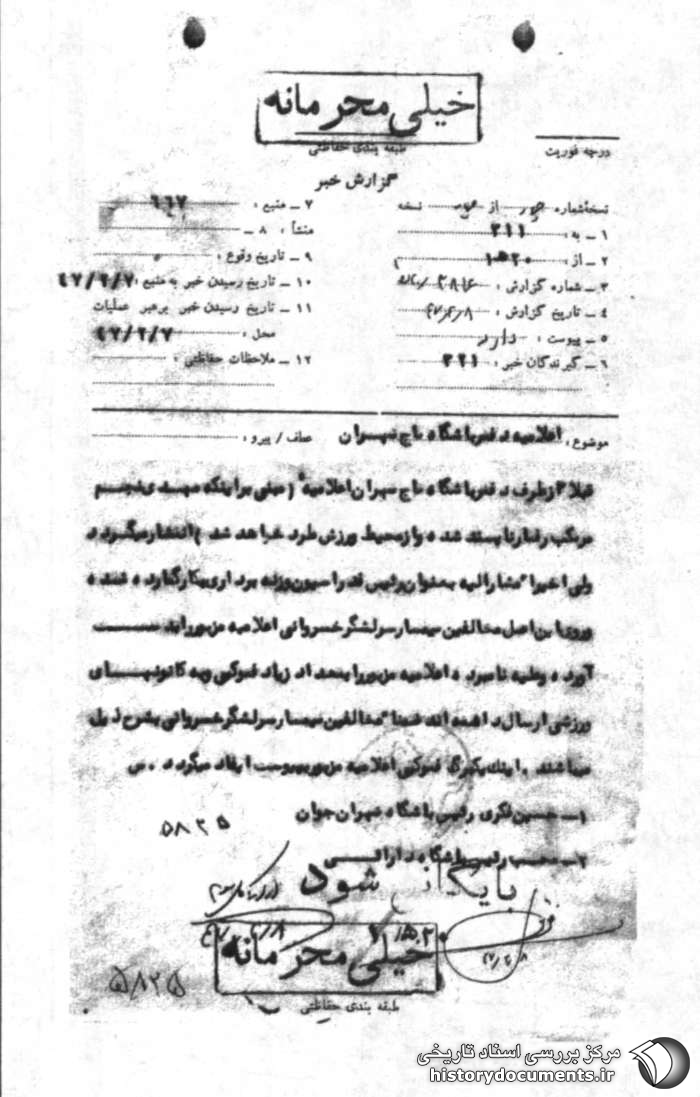 خیلی محرمانه
طبقه بندی حفاظتی
درجه فوریت
گزارش خبر
نسخه شماره از نسخه
۱ ـ به : ۳۱۱
۲ ـ از :
۳ ـ شماره گزارش :
۴ ـ تاریخ گزارش :
۵ ـ پیوست : دارد
۶ ـ گیرندگان خبر : ۳۲۱
۷ ـ منبع : ۶۶۷
۸ ـ منشأ :
۹ ـ تاریخ وقوع :
۱۰ ـ تاریخ رسیدن خبر به منبع : ۴۷/۲/۷
۱۱ ـ تاریخ رسیدن خبر برهبر عملیات
محل : ۴۷/۲/۷
۱۲ ـ ملاحظات حفاظتی :
موضوع : اعلامیه دفتر باشگاه تاج تهران
عطف / پیرو :
قبلا" از طرف دفتر باشگاه تاج تهران اعلامیه (مبنی بر اینکه مهدی
مرتکب رفتار ناپسند شده و از محیط ورزش طرد خواهد شد ) انتشار میگردد
ولی اخیرا" مشارالیه بعنوان رئیس فدراسیون وزنه برداری بکار گمارده شده
و روی این اصل مخالفین تیمسار سرلشگر خسروانی اعلامیه مزبور را بدست
آورده و علیه نامبرده اعلامیه مزبور را بتعداد زیاد فتوکپی و به کانونهای
ورزشی ارسال داشته اند ضمنا" مخالفین تیمسار سرلشگر خسروانی بشرح ذیل
میباشند . اینک یکبرگ فتوکپی اعلامیه مزبور بپیوست ایفاد میگردد . س
۱ـ حسین فکری رئیس باشگاه تهران جوان
۲ـ محب رئیس باشگاه دارائی
۵۸۲۵
بایگانی شود
خیلی محرمانه
طبقه بندی حفاظتی
۵۸۲۵
مرکز بررسی اسناد تاریخی
historydocuments.ir